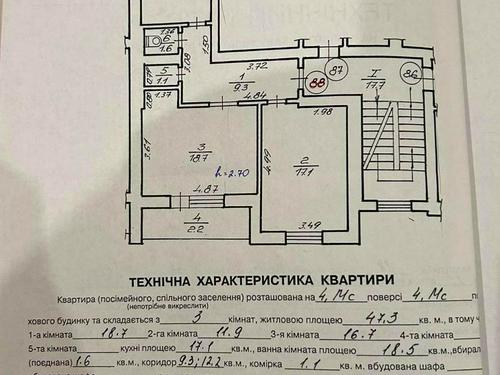 1.36
6
1.6
1.50
3.08
0.77
5
1.1
0.80
1.37
3.72
1
9.3
4.84
88
87
I
17.7
86
1.98
3.61
3
18.7
h=2.70
4.99
2
17.1
4.87
3.49
4
2.2
ТЕХНІЧНА ХАРАКТЕРИСТИКА КВАРТИРИ
Квартира (посімейного, спільного заселення) розташована на 4, Мс поверсі 4, Мс
(непотрібне викреслити)
хового будинку та складається з 3 кімнат, житловою площею 47,3 кв. м., в тому ч
1-а кімната 18.7 2-га кімната 11.9 3-я кімната 16.7 4-та кімната
5-та кімната кухні площею 17.1 кв.м., ванна кімната площею 18.5 кв.м.,вбирал
(поєднана) 1.6 кв.м., коридор 9.3; 12.2 кв.м., комірка 1.1 кв. м. вбудована шафа